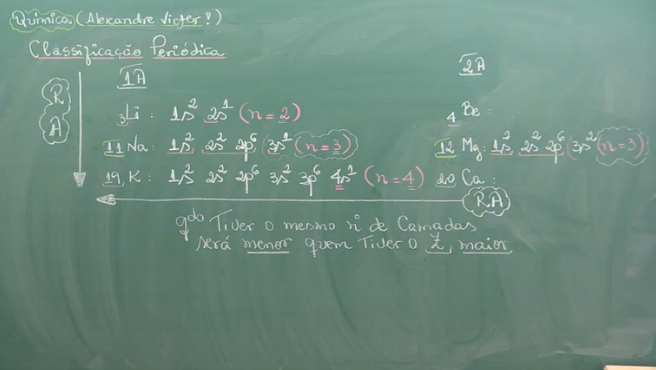 Química (Alexandre Victer!)
Classificação Periódica
1A 2A
R A
₃Li : 1s² 2s¹ (n=2) ₄Be :
₁₁Na : 1s² 2s² 2p⁶ 3s¹ (n=3) ₁₂Mg : 1s² 2s² 2p⁶ 3s² (n=3)
₁₉K : 1s² 2s² 2p⁶ 3s² 3p⁶ 4s¹ (n=4) ₂₀Ca :
RA
qdo Tiver o mesmo nº de Camadas
será menor quem Tiver o Z maior.